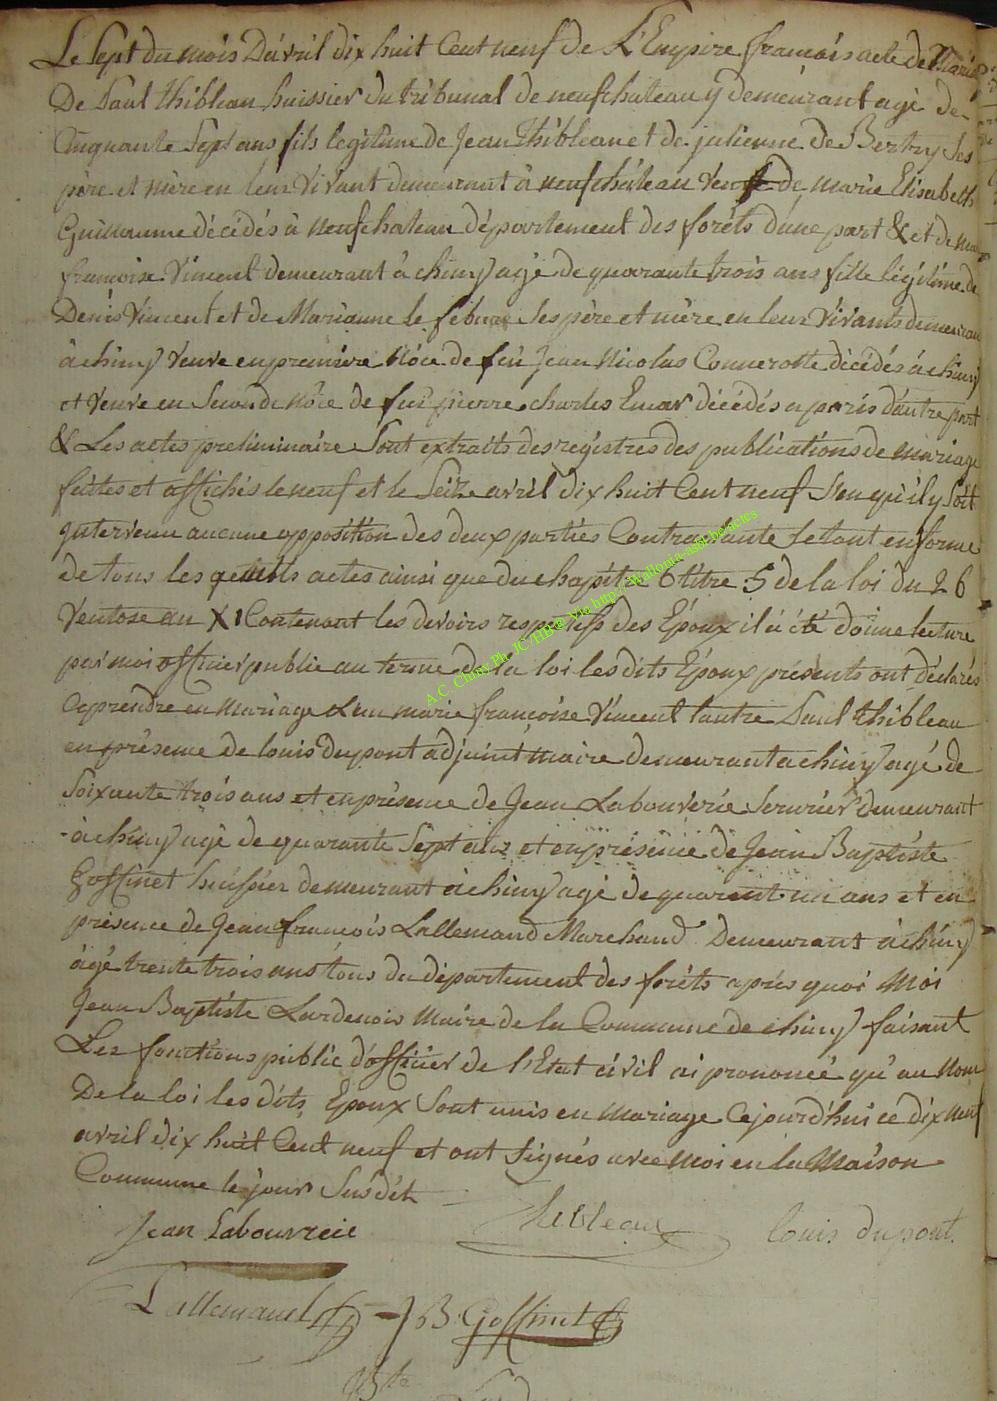 Le Sept du mois Davril dix huit Cent neuf de L'Empire francais acte de Maria
De Paul thibleau huissier du tribunal de neufchateau y demeurant agé de
Cinquante Sept ans fils legitime de Jean Thibleau et de julienne de Bertry Ses
père et mère en leur Vivant demeurant à neufchâteau Veuf de marie Elisabeth
Guillaume décédés à neufchateau département des forêts d'une part & et de
francoise Vincent demeurant à chiny agé de quarante trois ans fille légitime de
Denis Vincent et de Marianne le febure Ses père et mère en leur Vivants demeurau
à chiny Veuve en première Nôce de feu Jean Nicolas Connerotte décédés à chiny
et Veuve en Seconde nôce de feu pierre charles Emar décédés a paris d'autre part
& Les actes preliminaire Sont extraits des registres des publications de mariage
faites et affichés le neuf et le Seize avril dix huit Cent neuf S'en qu'il y Soit
intervenu aucune opposition des deux parties Contractante le tout en forme
de tous les actes ainsi que du chapitre 6 titre 5 de la loi du 26
Ventose an XI Contenant les devoirs respectifs des Epoux il à été donne lecture
par moi officier public au terme de la loi les dits Epoux présents ont déclarés
prendre en mariage L'un marie françoise Vincent l'autre Paul thibleau
en présence de louis dupont adjoint maire demeurant a chiny agé de
Soixante trois ans et en présence de Jean Labouverie Serrurier demeurant
à chiny agé de quarante Sept ans et en présence de Jean Baptiste
Goffinet huissier demeurant à chiny agé de quarent un ans et en
présence de Jean francois Lallemand Marchand Demeurant à chiny
âgé trente trois ans tous du département des forêts après quoi Moi
Jean Baptiste Lardenois Maire de la Commune de chiny faisant
Les fonctions public d'officier de l'Etat civil ai prononcé qu'au Nom
De la loi les dits Epoux Sont unis en mariage Cejourd'hui ce dix neuf
avril dix huit Cent neuf et ont Signés avec moi en la Maison
Commune le jour Susdit
Jean Labouvreie Thibleau louis dupont
Lallemand J B Goffinet
A.C. Chiny Ph. JC THB @ Via http://wallonia-asbl.be/actes